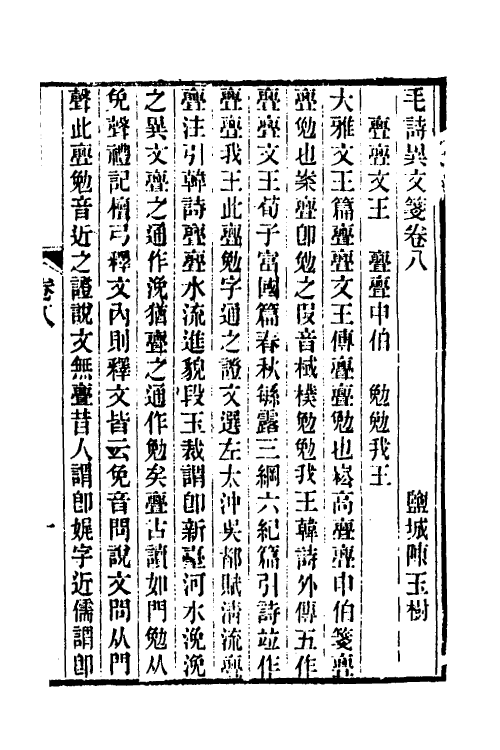 毛詩異文箋卷八
鹽城陳玉樹
亹亹文王　亹亹申伯　勉勉我王
大雅文王篇亹亹文王傳亹亹勉也崧高亹亹申伯箋亹
亹勉也案亹卽勉之叚音棫樸勉勉我王韓詩外傳五作
亹亹文王荀子富國篇春秋緐露三綱六紀篇引詩竝作
亹亹我王此亹勉字通之證文選左太沖吳都賦淸流亹
亹注引韓詩亹亹水流進貌段玉裁謂卽新臺河水浼浼
之異文亹之通作浼猶亹之通作勉矣亹古讀如門勉从
免聲禮記檀弓釋文內則釋文皆云免音問說文問从門
聲此亹勉音近之證說文無亹昔人謂卽娓字近儒謂卽
卷八
一